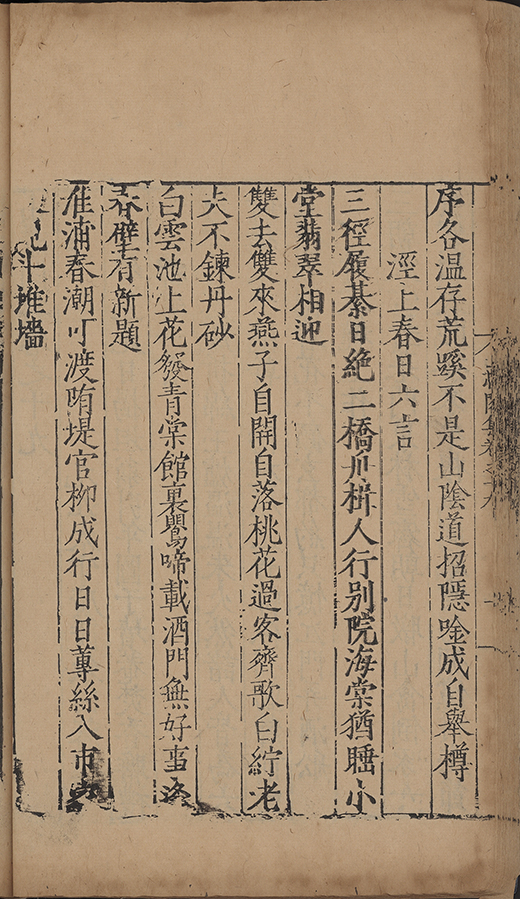 序各溫存荒蹊不是山陰道招隱唫成自舉樽
涇上春日六言
三徑履綦日絕二橋爪楫人行別院海棠猶睡小
堂翡翠相迎
雙去雙來燕子自開自落桃花過客齊歌白紵老
夫不鍊丹砂
白雲池上花發青棠館裏鸎啼載酒門無好事
吞壁有新題
淮浦春潮可渡唷堤官柳成行日日蓴絲入市
十堆墻